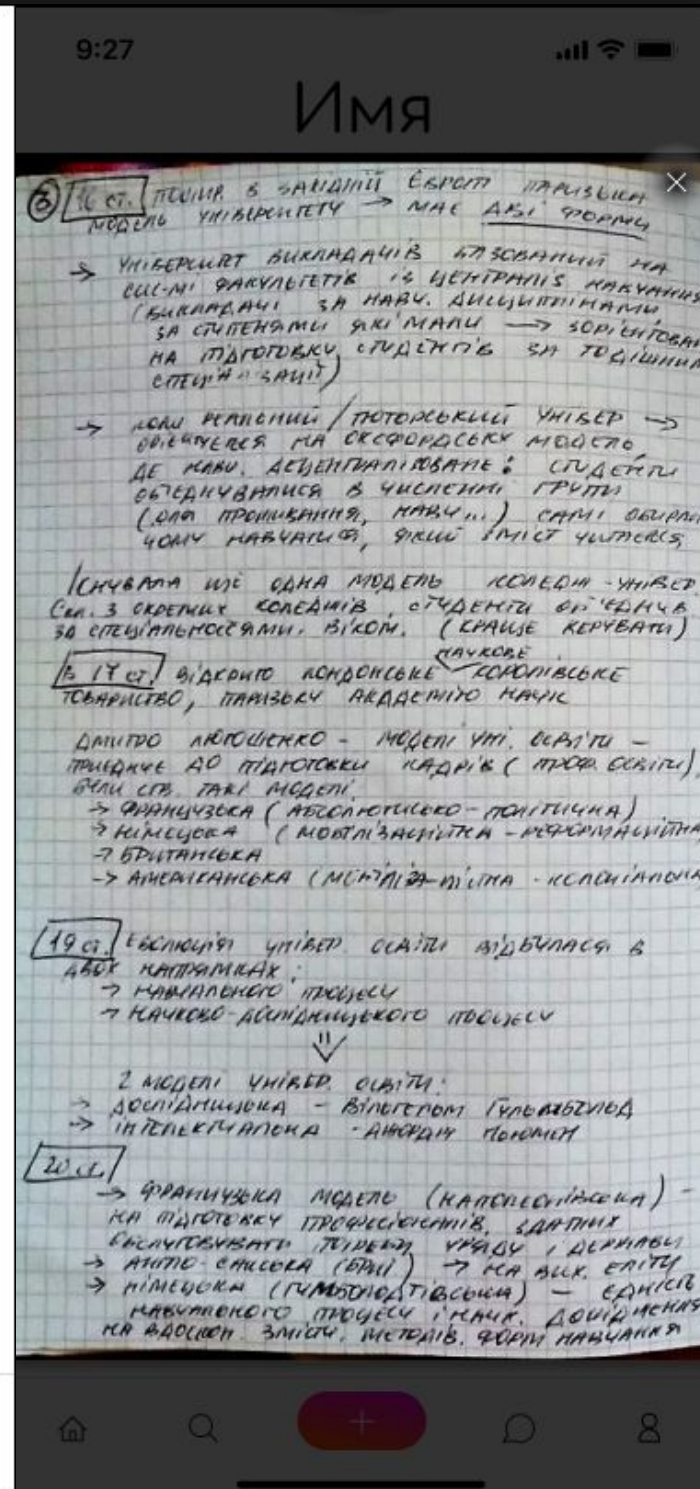 9:27
Имя
③ 16 ст. ПОШИР. В ЗАХІДНІЙ ЄВРОПІ ПАРИЗЬКА
МОДЕЛЬ УНІВЕРСИТЕТУ → МАЄ ДВІ ФОРМИ
→ УНІВЕРСИТЕТ ВИКЛАДАЧІВ БАЗОВАНИЙ НА
СИС-МІ ФАКУЛЬТЕТІВ ІЗ ЦЕНТРАЛІЗ НАВЧАННЯ
(ВИКЛАДАЧІ ЗА НАВЧ. ДИСЦИПЛІНАМИ
ЗА СТУПЕНЯМИ ЯКІ МАЛИ → ЗОРІЄНТОВАН
НА ПІДГОТОВКУ СТУДЕНТІВ ЗА ТОДІШНІМ
СПЕЦІАЛІЗАЦІЇ)
→ /ТЮТОРСЬКИЙ УНІВЕР →
НА ОКСФОРДСЬКУ МОДЕЛЬ
ДЕ НАВЧ. ДЕЦЕНТРАЛІЗОВАНЕ: СТУДЕНТИ
ОБ'ЄДНУВАЛИСЯ В ЧИСЛЕННІ ГРУПИ
(ДЛЯ ПРОЖИВАННЯ, НАВЧ...) САМІ ОБИРАЛИ
ЧОМУ НАВЧАТИСЯ, ЯКИЙ ЗМІСТ
ІСНУВАЛА ЩЕ ОДНА МОДЕЛЬ КОЛЕДЖ-УНІВЕР.
СКЛ. З ОКРЕМИХ КОЛЕДЖІВ, СТУДЕНТИ ОБ'ЄДНУВ
ЗА СПЕЦІАЛЬНОСТЯМИ, ВІКОМ. (КРАЩЕ КЕРУВАТИ)
НАУКОВЕ
В 17 ст. ВІДКРИТО ЛОНДОНСЬКЕ КОРОЛІВСЬКЕ
ТОВАРИСТВО, ПАРИЗЬКУ АКАДЕМІЮ НАУК
ДМИТРО - МОДЕЛІ УНІ. ОСВІТИ -
ПРИЄДНУЄ ДО ПІДГОТОВКИ КАДРІВ (ПРОФ. ОСВІТИ),
БУЛИ СТВ. ТАКІ МОДЕЛІ
→ ФРАНЦУЗЬКА (АБСОЛЮТИСЬКО-ПОЛІТИЧНА)
→ НІМЕЦЬКА (МОБІЛІЗАЦІЙНА-РЕФОРМАЦІЙНА
→ БРИТАНСЬКА
→ АМЕРИКАНСЬКА
19 ст. ЕВОЛЮЦІЯ УНІВЕР. ОСВІТИ ВІДБУЛАСЯ В
ДВОХ НАПРЯМКАХ:
→ НАВЧАЛЬНОГО ПРОЦЕСУ
→ НАУКОВО-ДОСЛІДНИЦЬКОГО ПРОЦЕСУ
2 МОДЕЛІ УНІВЕР. ОСВІТИ:
→ ДОСЛІДНИЦЬКА - ВІЛЬГЕЛЬМ ГУЛЬМБОЛЬД
→ ІНТЕЛЕКТУАЛЬНА - ДЖОРДЖ НЬЮМЕН
20 ст.
→ ФРАНЦУЗЬКА МОДЕЛЬ (НАПОЛЕОНІВСЬКА) -
НА ПІДГОТОВКУ ПРОФЕСІОНАЛІВ, ЗДАТНИХ
ОБСЛУГОВУВАТИ ПОТРЕБИ УРЯДУ І ДЕРЖАВИ
→ АНГЛО-САКСЬКА (БРИТ) → НА ВИХ. ЕЛІТИ
→ НІМЕЦЬКА (ГУМБОЛЬДТІВСЬКА) - ЄДНІСТЬ
НАВЧАЛЬНОГО ПРОЦЕСУ І НАУК. ДОСЛІДЖЕННЯ
НА ВДОСКОН. ЗМІСТУ, МЕТОДІВ, ФОРМ НАВЧАННЯ